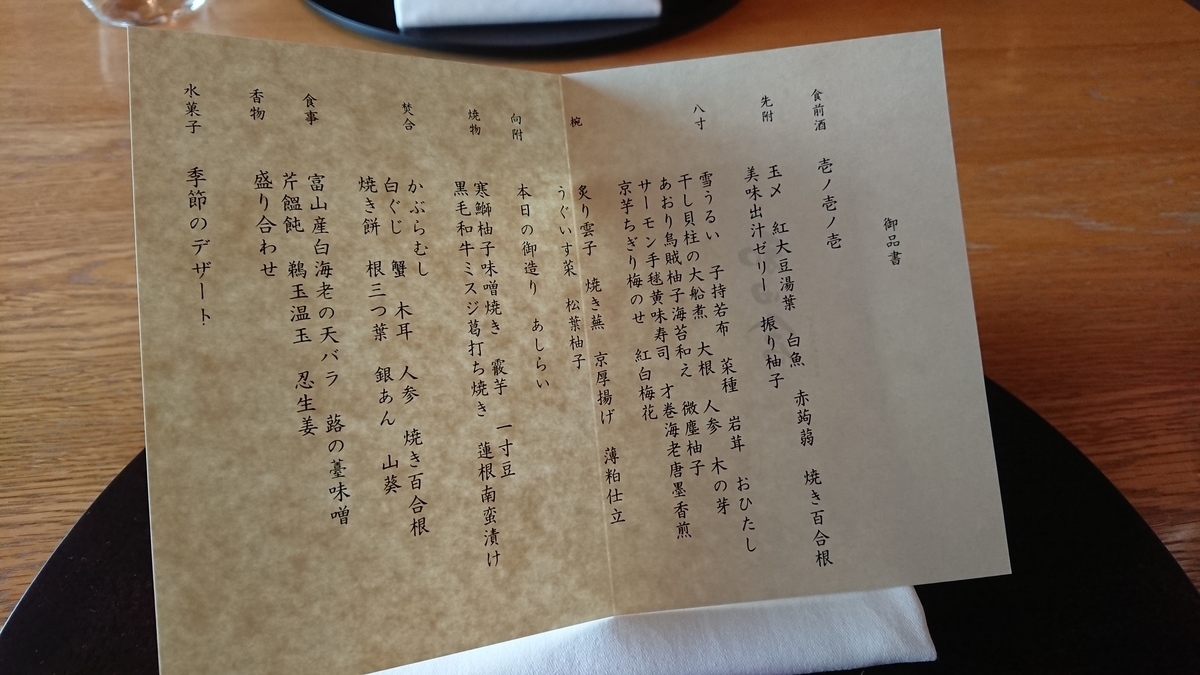 御品書
食前酒 壱ノ壱ノ壱
先附 玉〆 紅大豆湯葉 白魚 赤蒟蒻 焼き百合根
美味出汁ゼリー 振り柚子
八寸 雪うるい 子持若布 菜種 岩茸 おひたし
干し貝柱の大船煮 大根 人参 木の芽
あおり烏賊柚子海苔和え 微塵柚子
サーモン手毬黄味寿司 才巻海老唐墨香煎
京芋ちぎり梅のせ 紅白梅花
椀 炙り雲子 焼き蕪 京厚揚げ 薄粕仕立
うぐいす菜 松葉柚子
向附 本日の御造り あしらい
焼物 寒鰤柚子味噌焼き 霰芋 一寸豆
黒毛和牛ミスジ葛打ち焼き 蓮根南蛮漬け
焚合 かぶらむし
白ぐじ 蟹 木耳 人参 焼き百合根
焼き餅 根三つ葉 銀あん 山葵
食事 富山産白海老の天バラ 蕗の薹味噌
芹饂飩 鵜玉温玉 忍生姜
香物 盛り合わせ
水菓子 季節のデザート